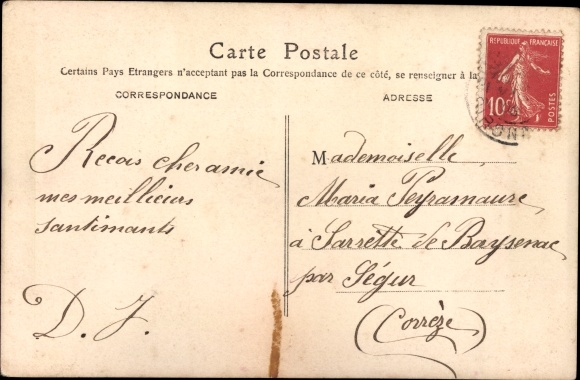 Carte Postale
Certains Pays Etrangers n'acceptant pas la Correspondance de ce côté, se renseigner à la
CORRESPONDANCE
ADRESSE
REPUBLIQUE FRANÇAISE
10c
POSTES
Recois cher amie
mes meillieurs
santimants
D. J.
Mademoiselle
Maria Peyramaure
à Sarrette de Baysenac
par Ségur
(Corrèze)